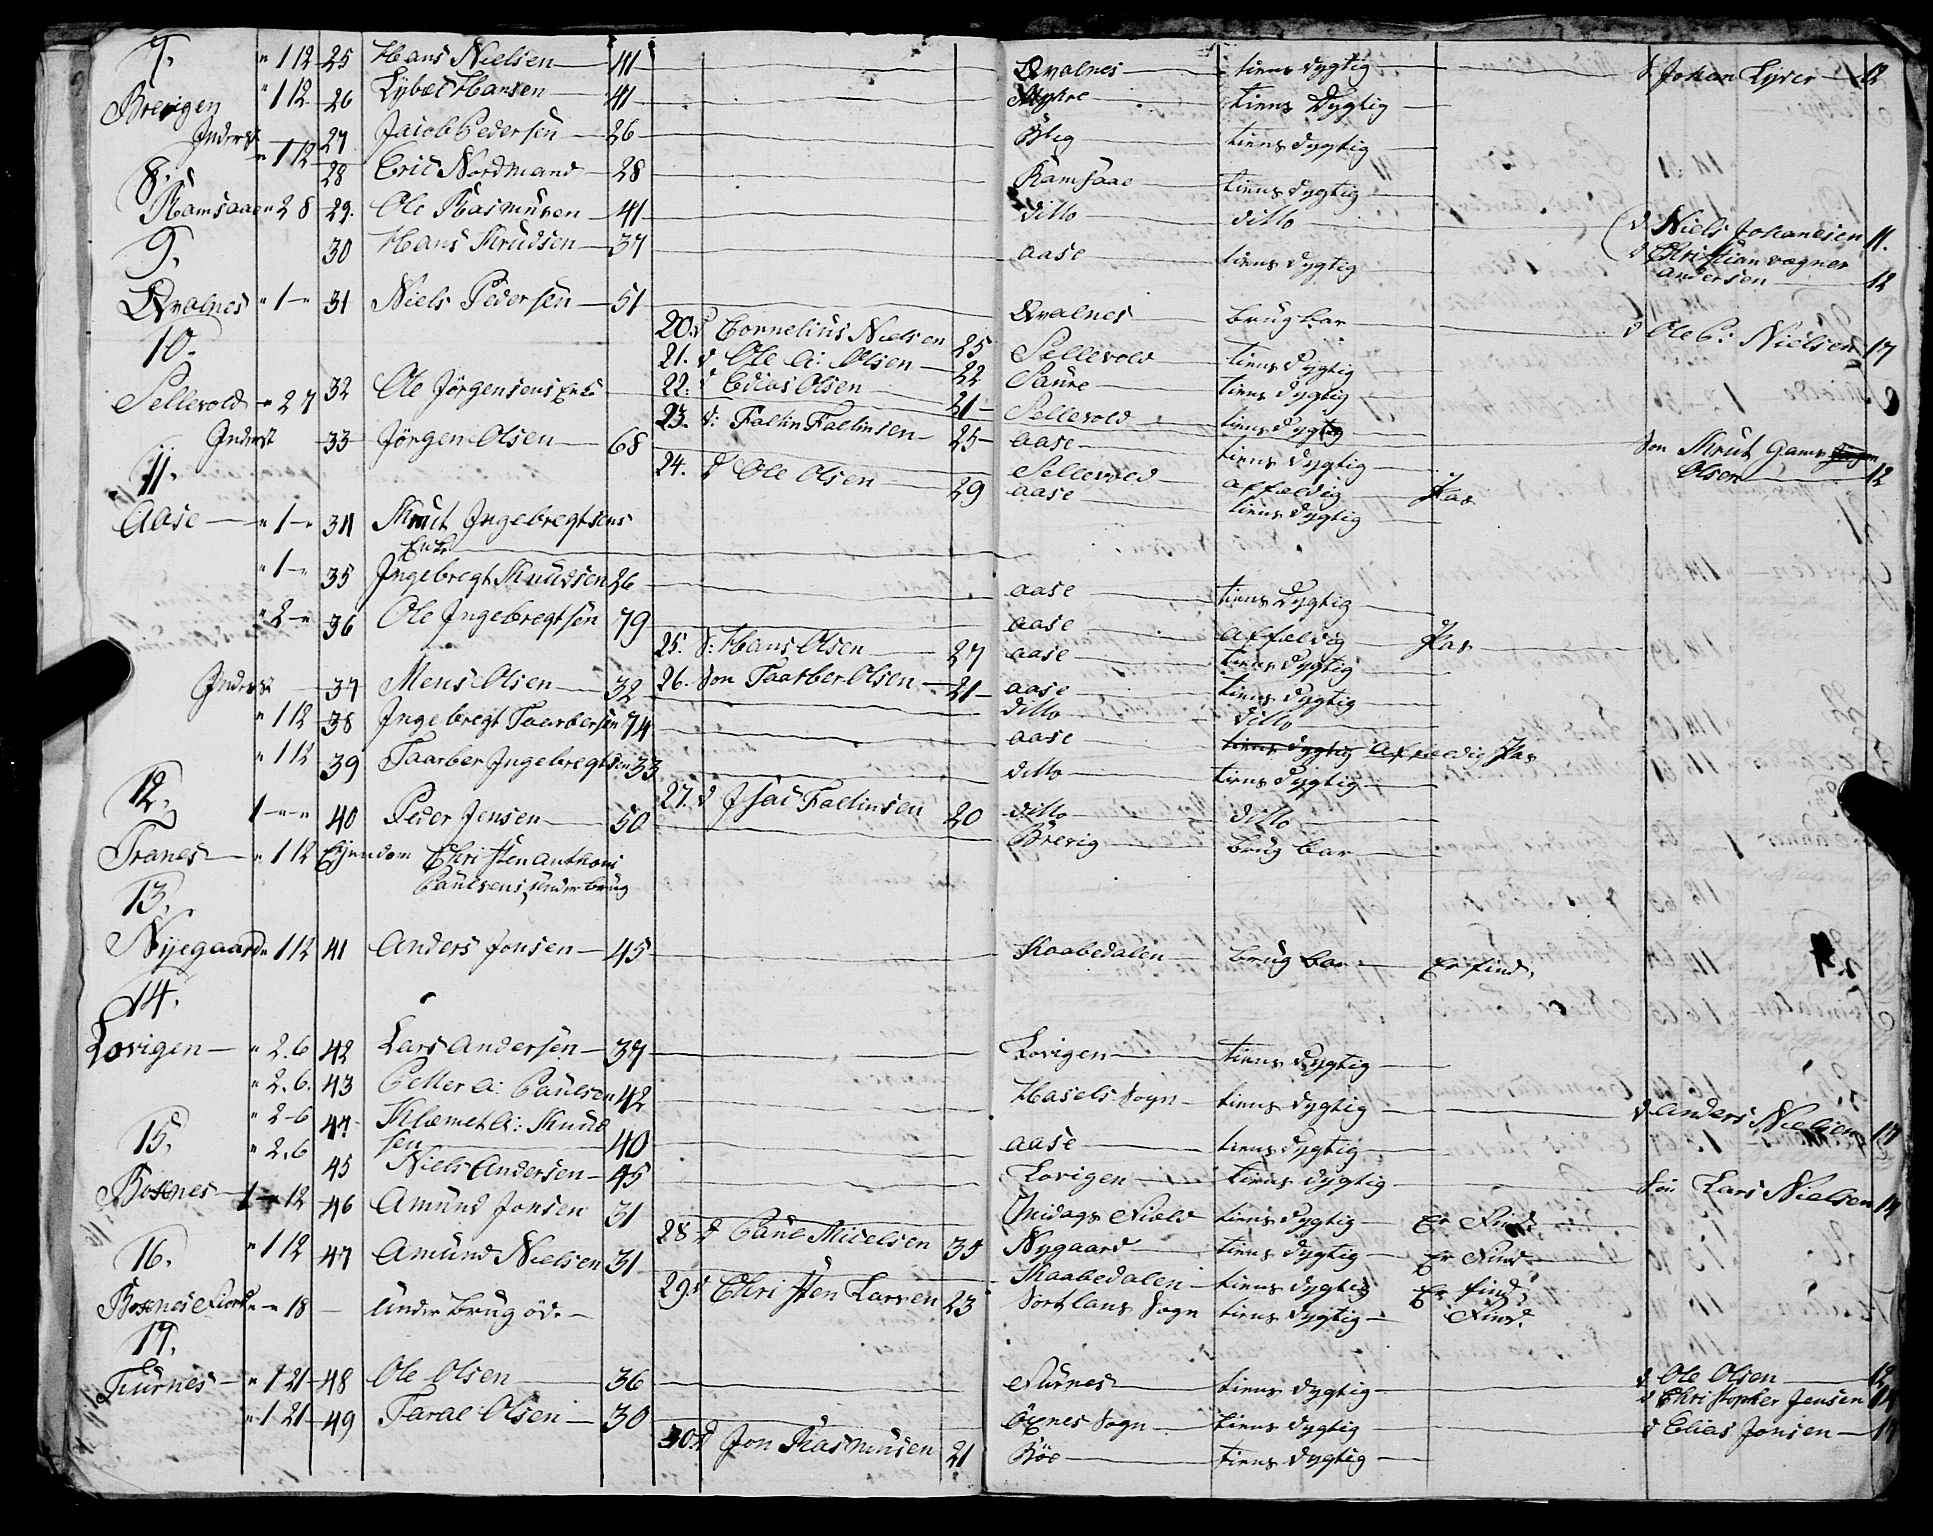 7.
Brevigen " 1 12 25 Hans Nielsen — 41 — Qvalnes — tiensdygtig — d Johan Lyder — 12
" 1 12 26 Lybæt Hansen — 41 — Myhre — tiens Dygtig —
Inderst 27 Jacob Pedersen — 26 — Bleg — tiens dygtig —
8. " 1 12 28 Eric Nordmand — 28 — Ramsaae — tiens dygtig —
Ramsaae " 2 8 29. Ole Rasmusen — 41 — ditto — ditto — d Niels Johanesen 11.
9. 30 Hans Knudsen — 37 — aase — tiens dygtig — d Christian wægner
andersen — 12
Qvalnes " 1 — " 31 Niels Pedersen — 51 — Qvalnes — brugbar — d Ole C: Nielsen 17
10. 20. d Cornelius Nielsen 25 Sellevold — tiens dygtig —
21. d Ole A: Olsen — 22 Saure — tiens dygtig —
Sellevold — " 2 7 32 Ole Jörgensens Enke 22. d Edias Olsen — 21 — Sellevold — tiens dygtig
23. S: Faltin Faltinsen — 25 — aase — tiens dygtig —
Inderst — 33 — Jörgen Olsen — 68 — Sellevold — affældig — Kas son Knut Gams
Olsen — 12
11. 24. d Ole Olsen — 29 aase — tiens dygtig —
Aase — " 1 — " 34 Knut Ingebregtsens
Enke
" 1 — " 35 Ingebregt Knudsen 26 — aase — tiens Dygtig —
" 2 — " 36 Ole Ingebregtsen 79 — aase — affældig — Kas
25. S: Hans Olsen — 27 aase — tiens dygtig —
26. Son Taarber Olsen — 21 — aase — tiens dygtig —
Inderst — 37 Mens Olsen — 32 — ditto — ditto —
" 1 12 38 Ingebregt Taarbersen 74 — aase — tiens dygtig affældig Kas
" 1 12 39 Taarber Ingebregtsen 33 — ditto — tiens dygtig —
12. 27. d Isac Faltinsen 20 ditto — ditto —
1 — " — " 40 Peder Jensen — 50 — Brevig — brugbar —
Tranes — " 1 12 Ejendom Christen anthoni
Paulsens, under brug
13.
Nyegaard " 1 12 41 Anders Jonsen — 45 — Kaabedalen — brugbar — Er find,
14.
Lovigen — " 2. 6 42 Lars Andersen — 37 — Lovigen — tiens dygtig —
" 2. 6. 43 Petter A: Paulsen 42 — Hasels Sogn — tiens dygtig — d Anders Nielsen 17
" 2 - 6 44 Klemet A: Knud
sen — 40 — aase — tiens dygtig —
15. " 2. 6 45 Niels Andersen — 45 — Lovigen — tiens dygtig — Sön Lars Nielsen 14
Boxnes — 1 — " 12 46 Amund Jonsen 31 — tiens dygtig — Er Find
28 d Paul Micelsen 35 Nygaard — tiens dygtig — Er Find.
16. " 1 12 47 Amund Nielsen 31 — Kaabedalen — tiens dygtig Er find,
29. d Christen Larsen 23 Sortlans Sogn tiens dygtig — Find.
Boxnes Fiord " — " 18 — Under Brug öde —
17.
Furnes — " 1 21 — 48 Ole Olsen — 36 — Furnes — tiens dygtig — d Ole Olsen — 12
d Christopher Jensen 14
" 1 21 — 49 Taral Olsen — 30 — Öxnes Sogn — tiens dygtig — d Elias Jonsen — 14
30. d Jon Rasmusen 21 Böe — tiens dygtig —